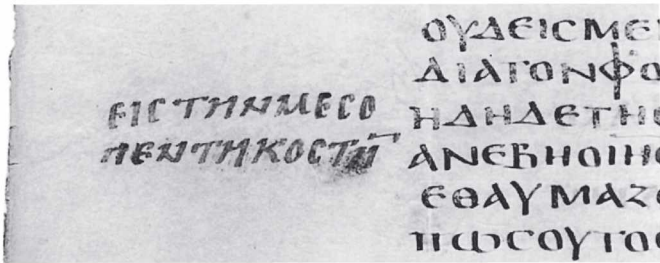 ΕΙCΤΗΝΜΕCΟ
ΠΕΝΤΗΚΟCΤΗ̅
ΟΥΔΕΙCΜΕ
ΔΙΑΤΟΝΦΟ
ΗΔΗΔΕΤΗ
ΑΝΕΒΗΟΙΗC
ΕΘΑΥΜΑΖ
ΠΩCΟΥΤΟC